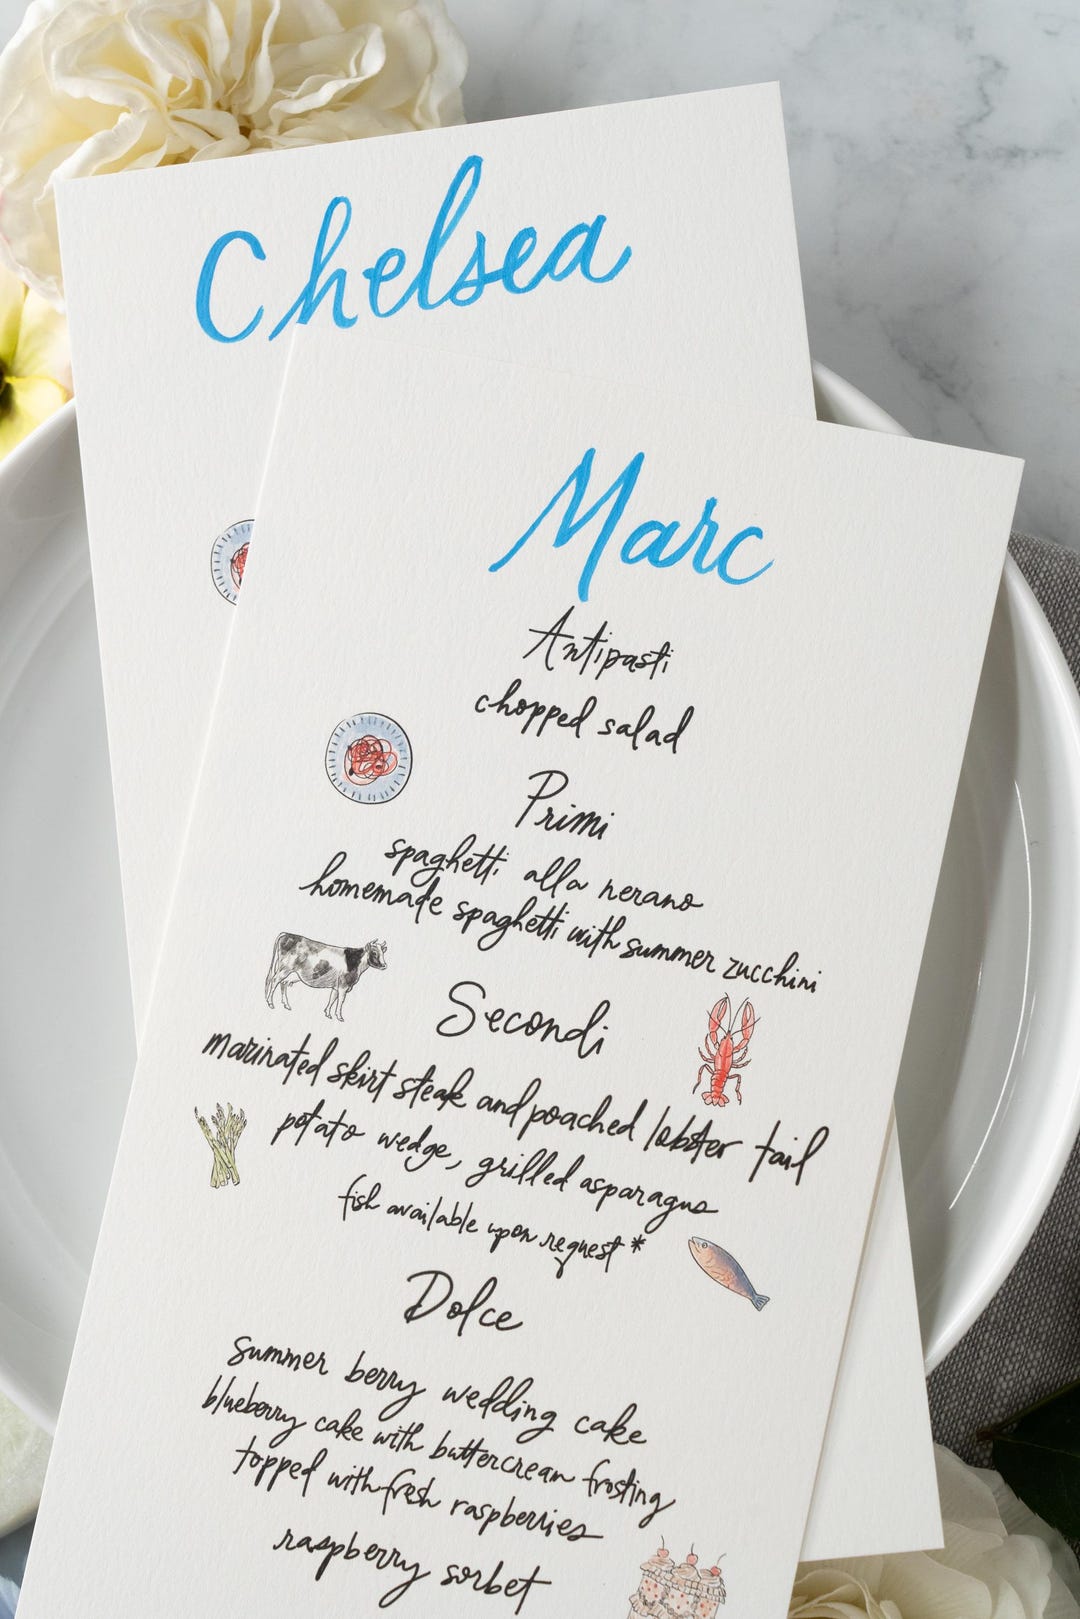 Chelsea
Marc
Antipasti
chopped salad
Primi
spaghetti alla nerano
homemade spaghetti with summer zucchini
Secondi
marinated skirt steak and poached lobster tail
potato wedge, grilled asparagus
fish available upon request *
Dolce
summer berry wedding cake
blueberry cake with buttercream frosting
topped with fresh raspberries
raspberry sorbet